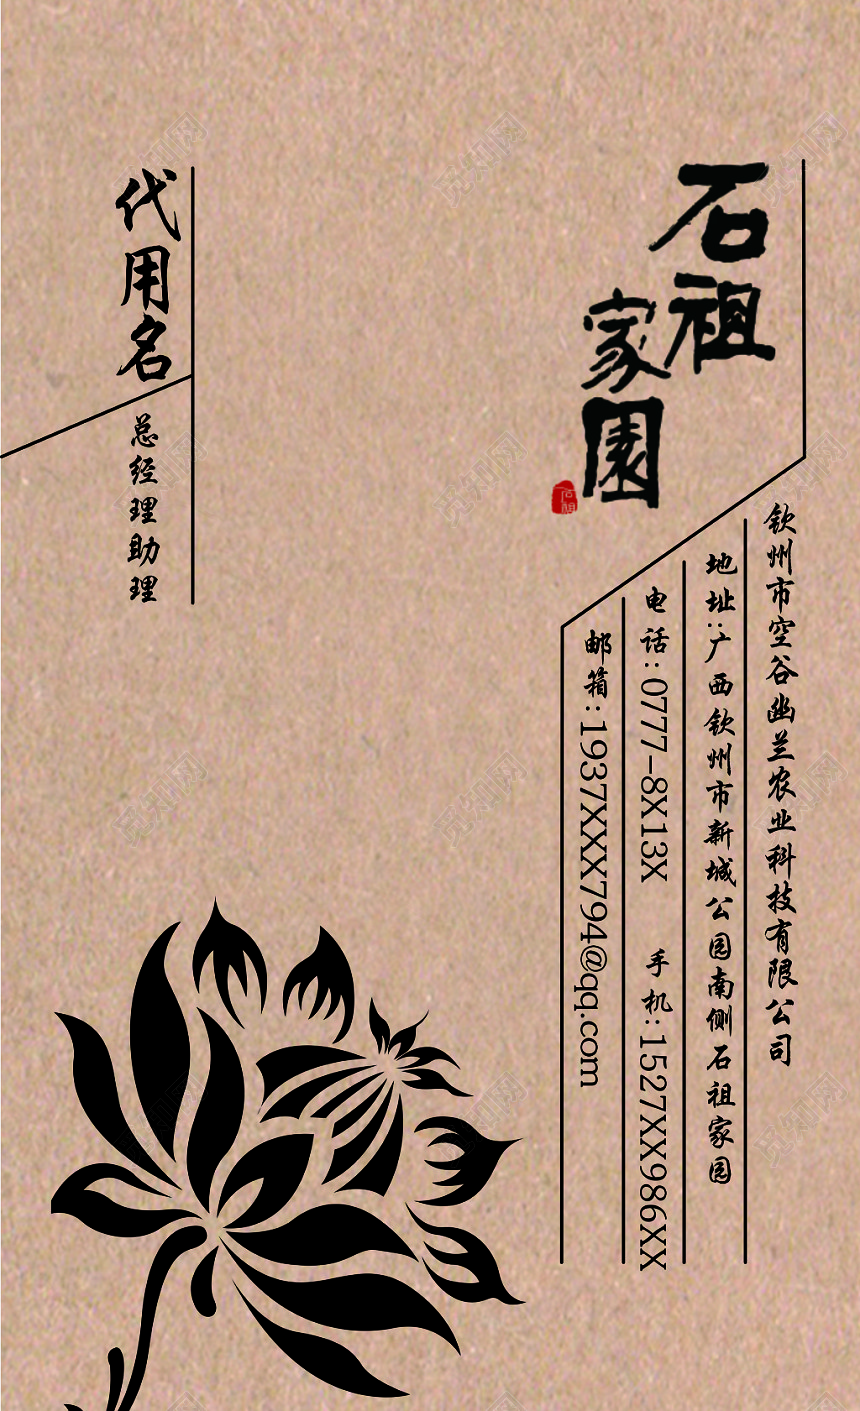 石祖
家園
石祖
钦州市空谷幽兰农业科技有限公司
地址:广西钦州市新城公园南侧石祖家园
电话:0777-8X13X 手机:1527XX986XX
邮箱:1937XXX794@qq.com
代用名
总经理助理
觅知网